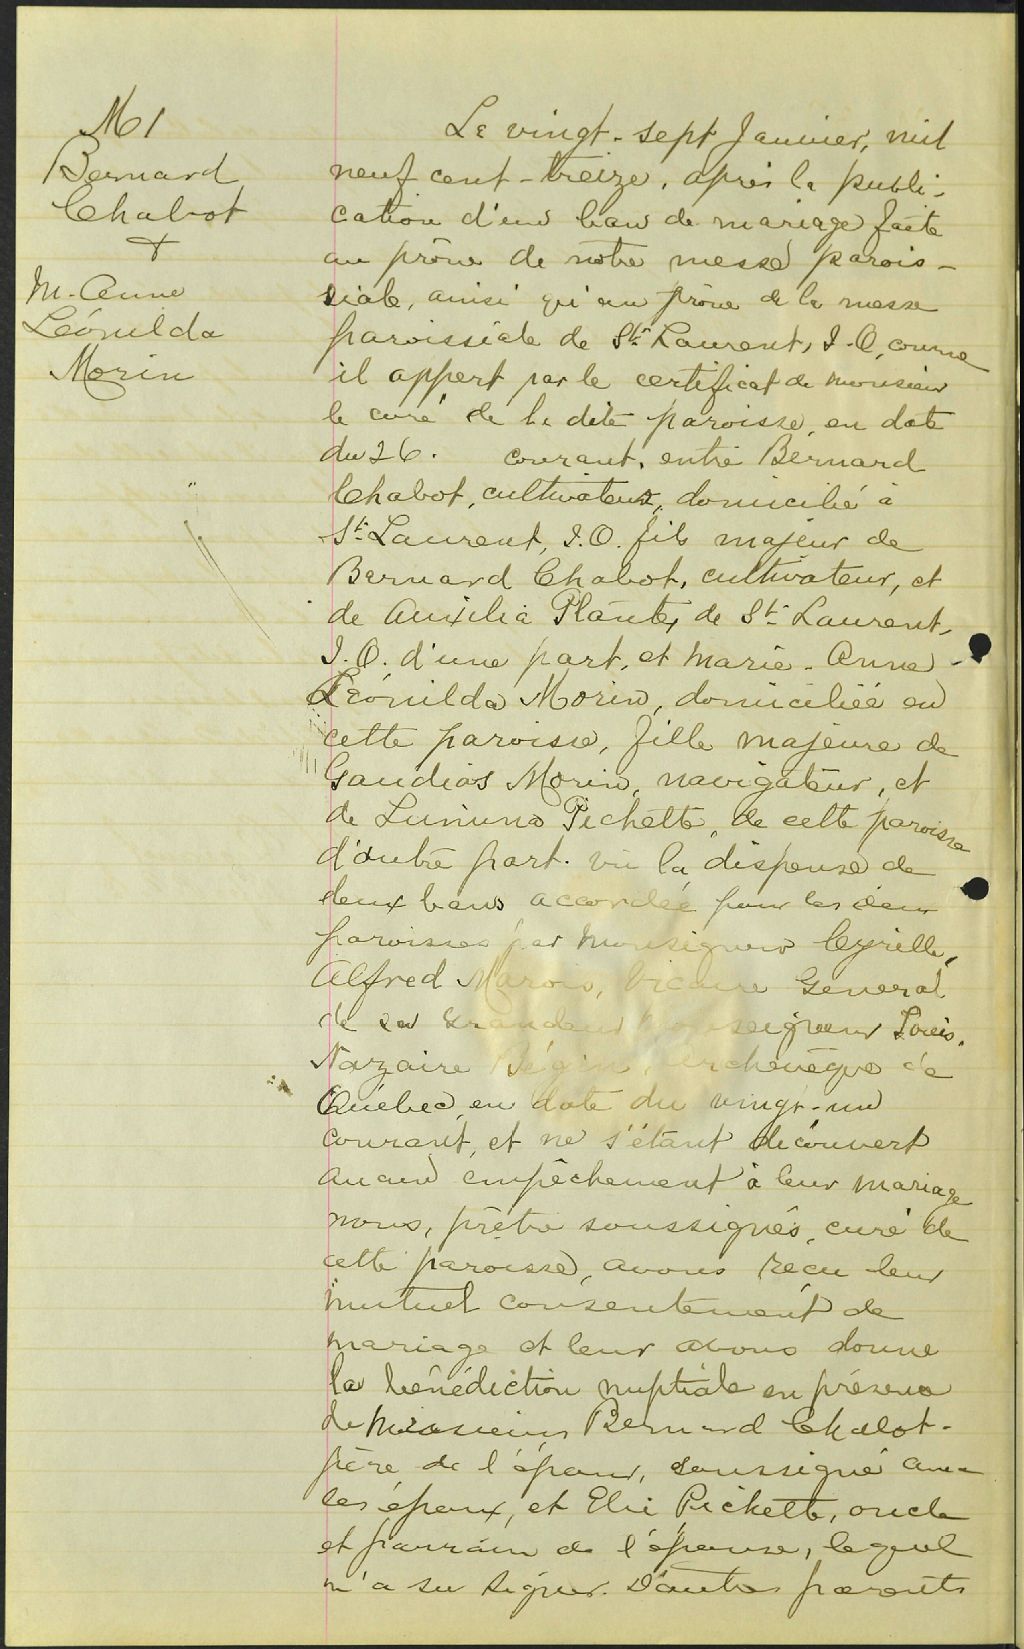 M 1
Bernard
Chabot
&
M. Anne
Léonilda
Morin
Le vingt-sept Janvier, mil
neuf cent-treize, après la publi-
cation d'un ban de mariage faite
au prône de notre messe parois-
siale, ainsi qu'au prône de la messe
paroissiale de St Laurent, I.O, comme
il appert par le certificat de monsieur
le curé de la dite paroisse, en date
du 26. courant, entre Bernard
Chabot, cultivateur, domicilié à
St Laurent, I.O. fils majeur de
Bernard Chabot, cultivateur, et
de Auxilia Plante, de St Laurent,
I.O. d'une part, et Marie-Anne
Léonilda Morin, domiciliée en
cette paroisse, fille majeure de
Gaudias Morin, navigateur, et
de Lumina Pichette, de cette paroisse
d'autre part. vu la dispense de
deux bans accordée pour les deux
paroisses par Monseigneur Cyrille,
Alfred Marois, Vicaire Général
de sa Grandeur Monseigneur Louis,
Nazaire Bégin, Archevêque de
Québec, en date du vingt-un
courant, et ne s'étant découvert
aucun empêchement à leur mariage
nous, prêtre soussignés, curé de
cette paroisse, avons reçu leur
mutuel consentement de
mariage et leur avons donné
la bénédiction nuptiale en présence
de Messieurs Bernard Chabot-
père de l'époux, soussigné avec
les époux, et Elie Pichette, oncle
et parrain de l'épouse, lequel
n'a su signer. D'autres parents